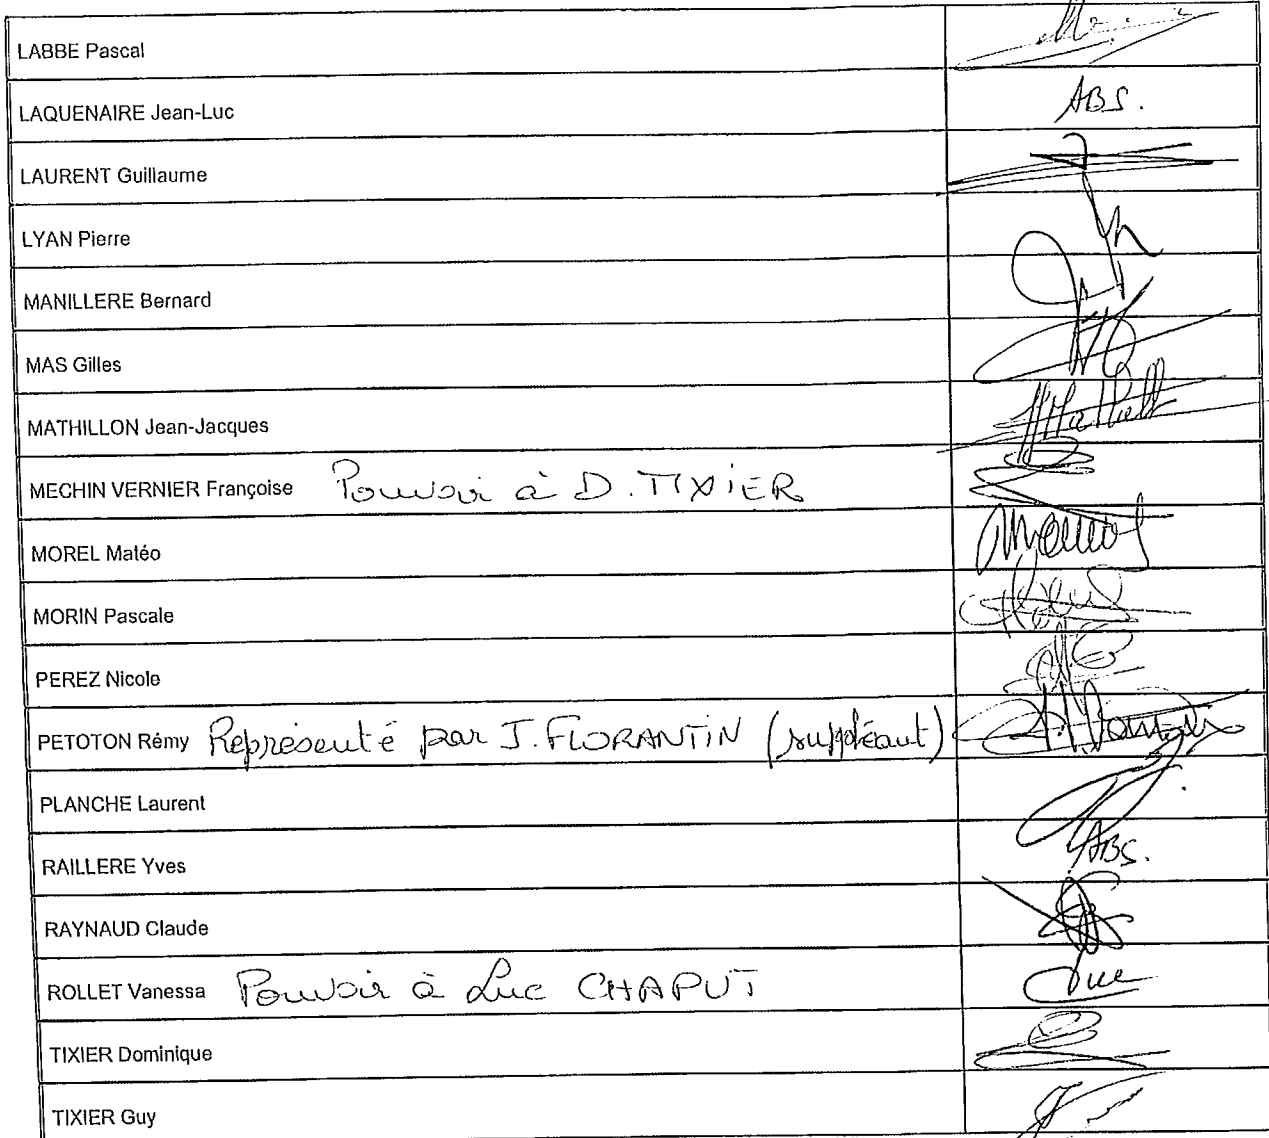 LABBE Pascal
LAQUENAIRE Jean-Luc ABS.
LAURENT Guillaume
LYAN Pierre
MANILLERE Bernard
MAS Gilles
MATHILLON Jean-Jacques
MECHIN VERNIER Françoise Pouvoir à D. TIXIER
MOREL Matéo
MORIN Pascale
PEREZ Nicole
PETOTON Rémy Représenté par J. FLORANTIN (suppléant)
PLANCHE Laurent
RAILLERE Yves ABS.
RAYNAUD Claude
ROLLET Vanessa Pouvoir à Luc CHAPUT
TIXIER Dominique
TIXIER Guy